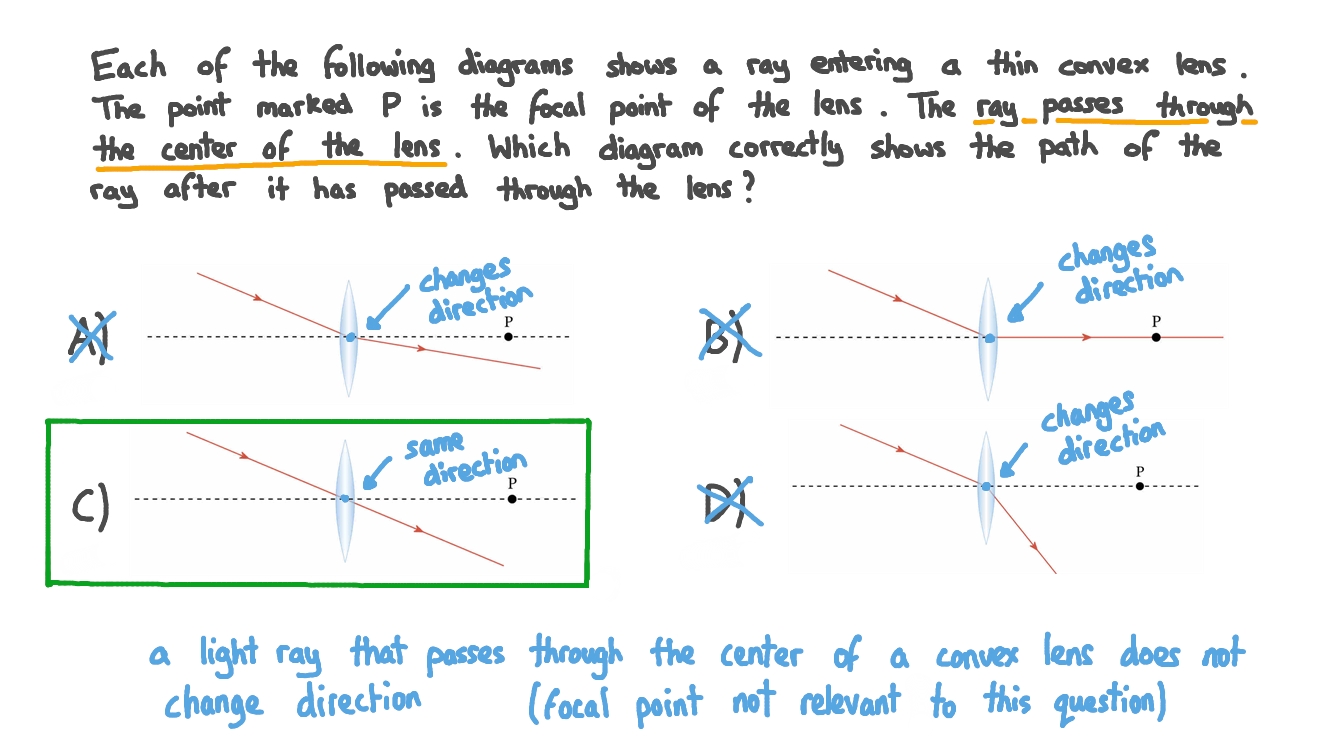 Each of the following diagrams shows a ray entering a thin convex lens.
The point marked P is the focal point of the lens. The ray passes through
the center of the lens. Which diagram correctly shows the path of the
ray after it has passed through the lens?
A)
changes
direction
P
B)
changes
direction
P
C)
same
direction
P
D)
changes
direction
P
a light ray that passes through the center of a convex lens does not
change direction (focal point not relevant to this question)